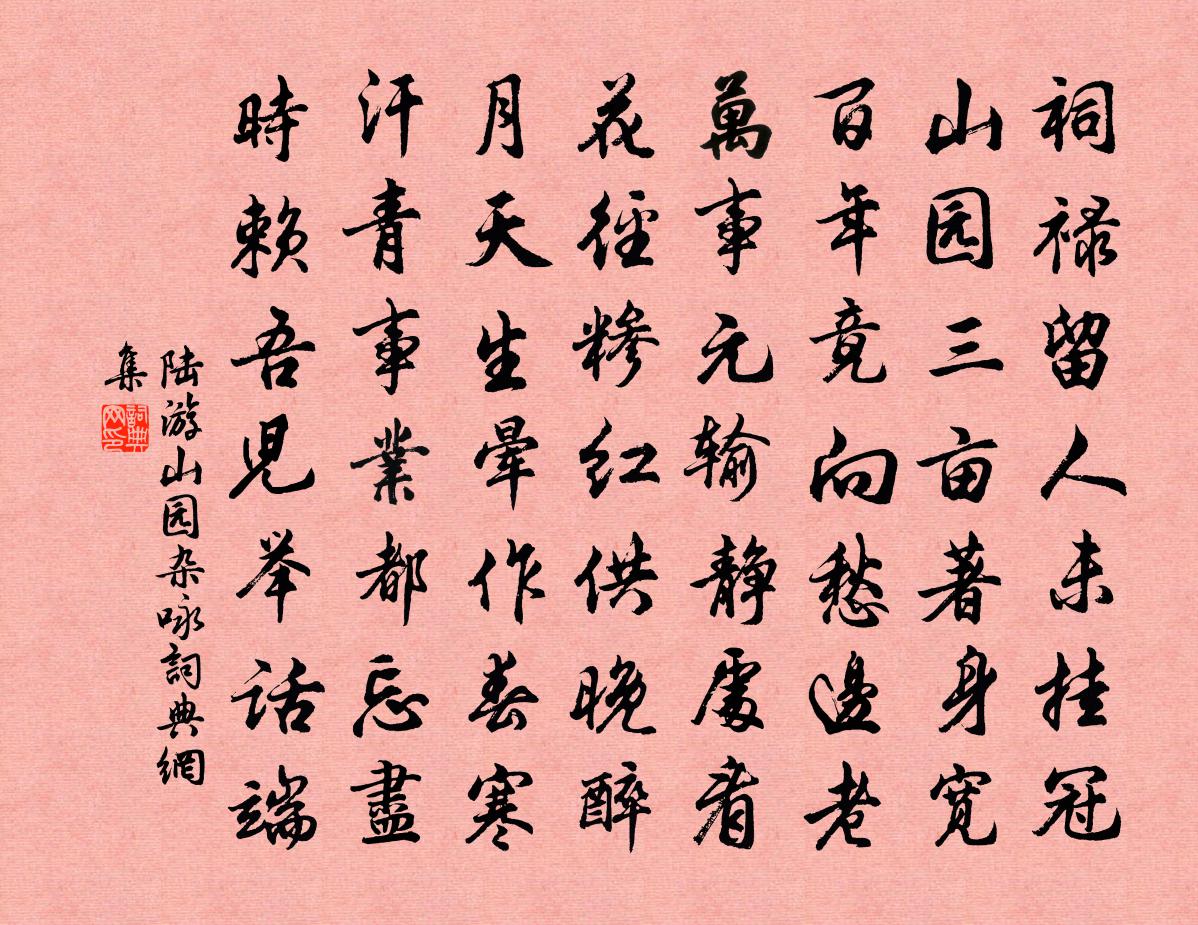 祠禄留人未挂冠
山园三亩著身寬
百年竟向愁邊老
萬事元输静處看
花徑糁红供晚醉
月天生暈作春寒
汗青事業都忘盡
時赖吾児举话端
陆游山园杂咏詞典網
集
詞典网印